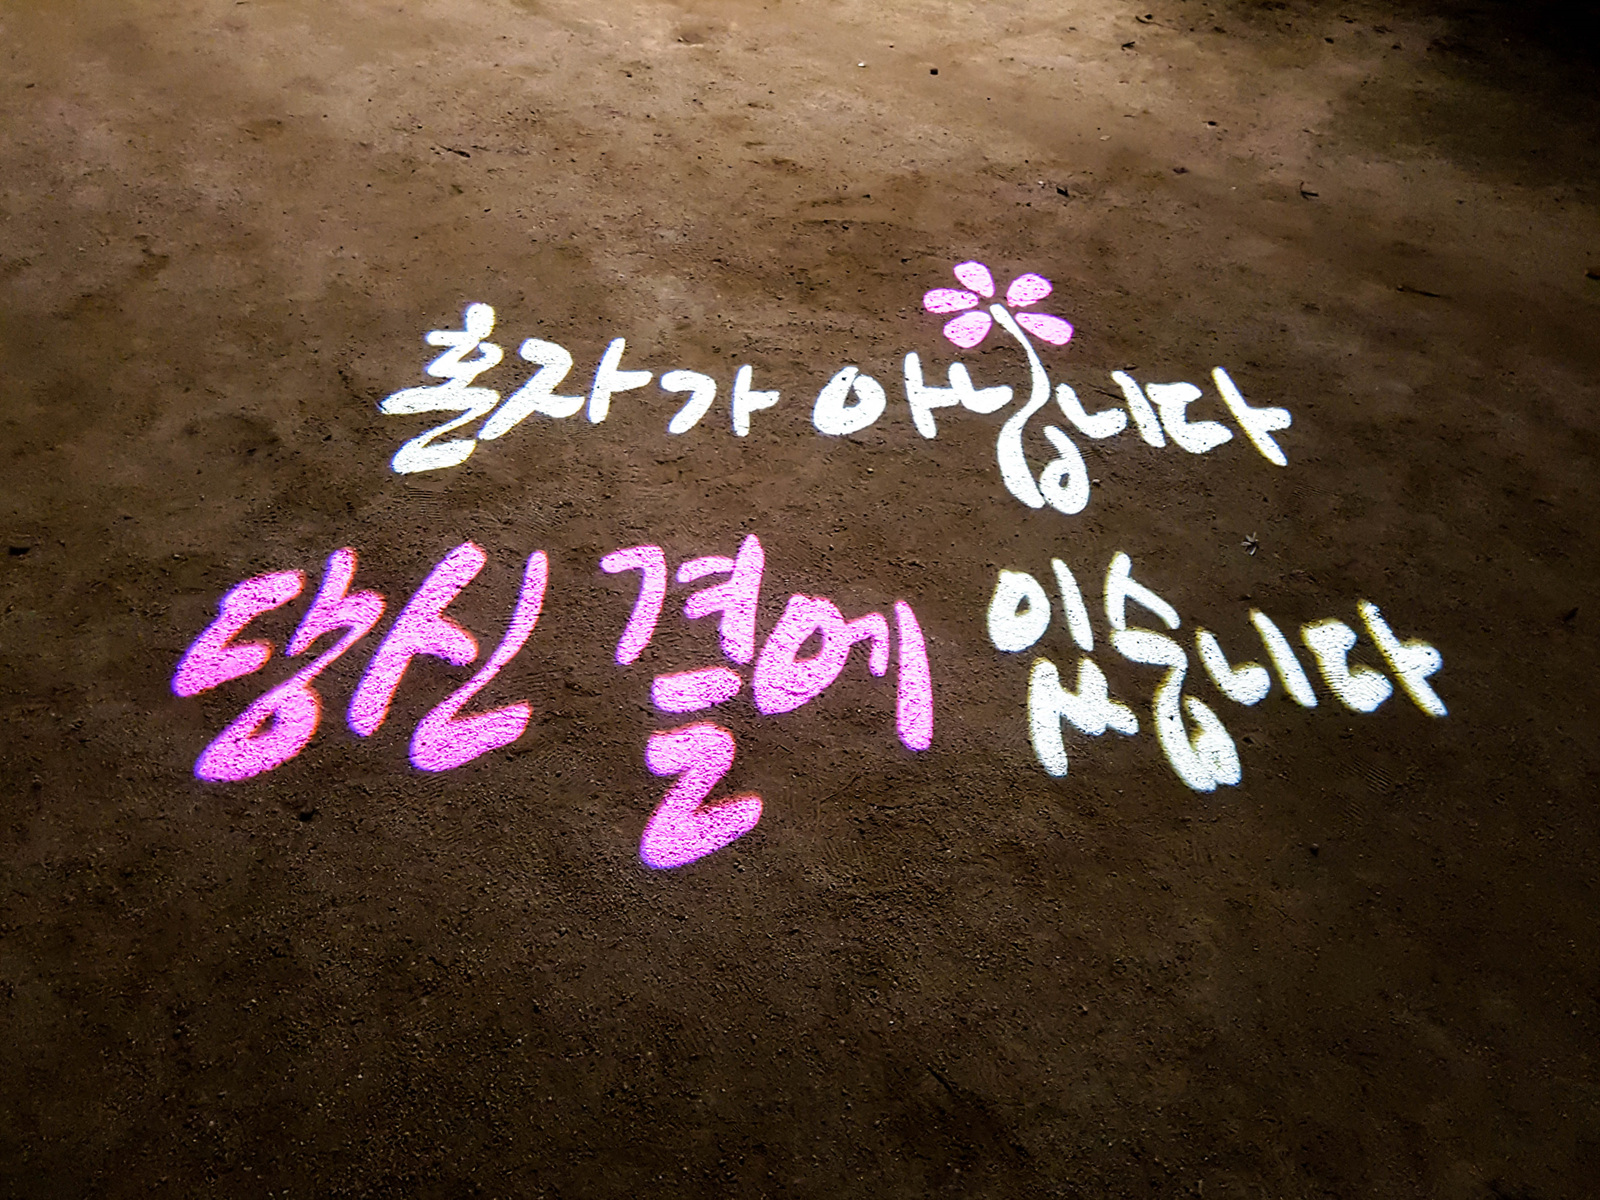 혼자가 아닙니다
당신 곁에 있습니다